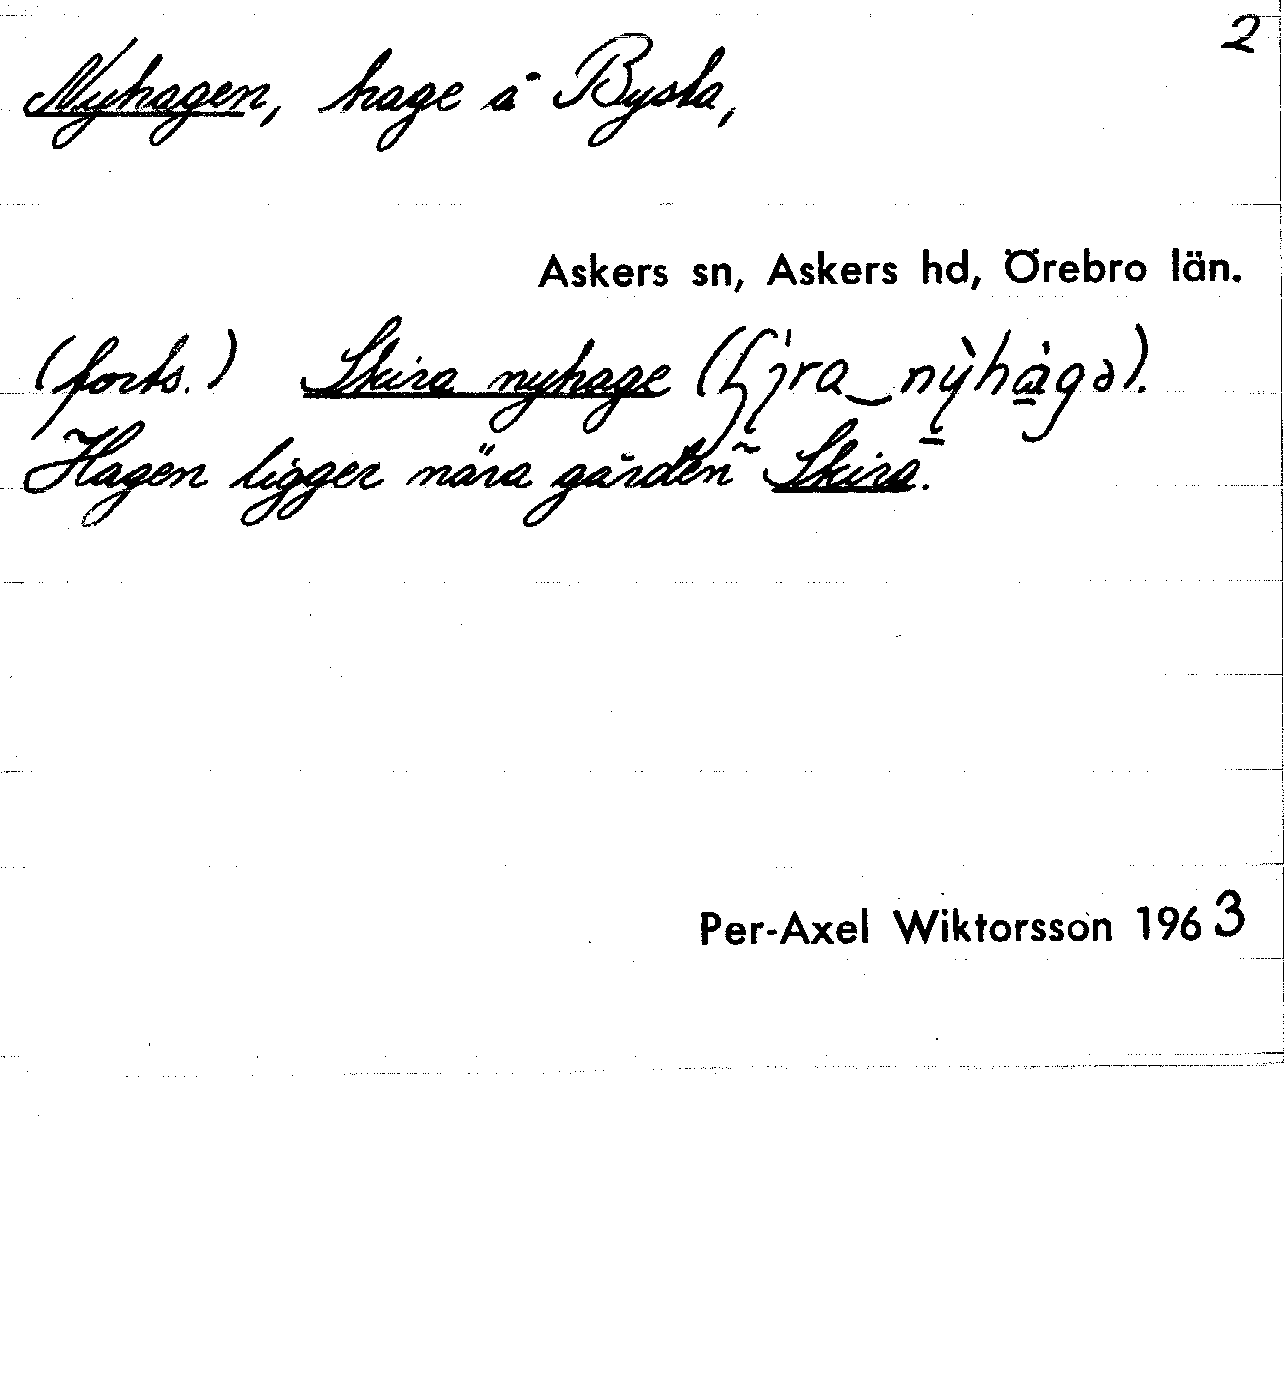 2
Nyhagen, hage å Bysta,
Askers sn, Askers hd, Örebro län.
(forts.) Skira nyhage
Hagen ligger nära gården Skira.
Per-Axel Wiktorsson 1963